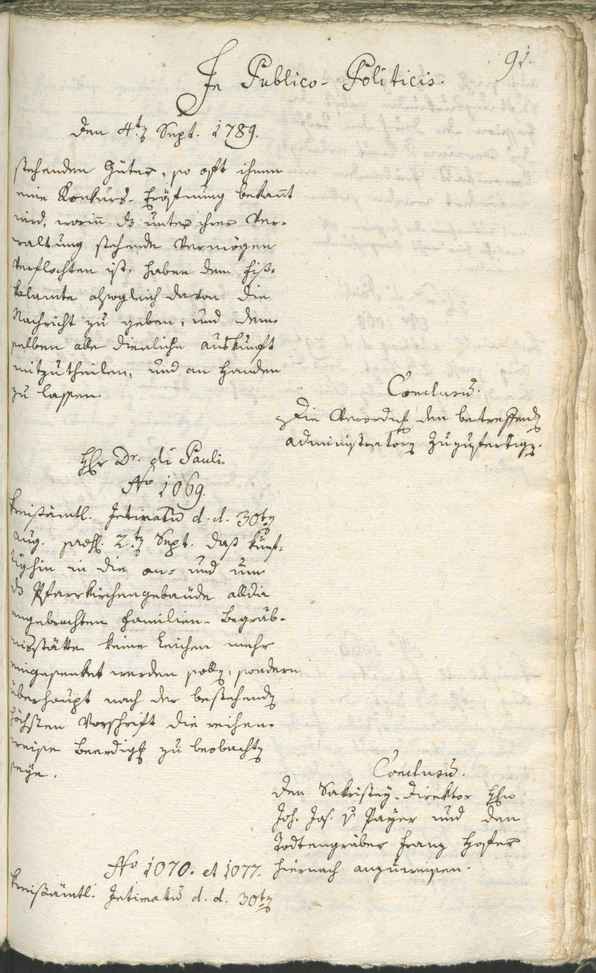 91.
In Publico-Politicis.
den 4tn Sept. 1789.
stehenden Güter, so oft ihnen
eine Konkurs-Eröfnung bekant
wird, worin ds unter ihrer Ver-
waltung stehende Vermögen
verflochten ist, haben dem Fis-
kalamte alsogleich davon die
Nachricht zu geben, und dem-
selben alle dienliche Auskunft
mitzutheilen, und an Handen
zu lassen.
Conclusum.
Die Verordng den betreffendn
administratorn zuzufertign.
Hhr Dr. di Pauli
No 1069.
Kreisämtl. Intimatum d. d. 30tn
Aug. præs. 2tn Sept. daß künf-
tighin in die an- und um
ds Pfarrkirchengebäude allda
angebrachten Familien-Begräb-
nisstätte keine Leichen mehr
eingesenket werden solln, sondern
überhaupt nach der bestehendn
höchsten Vorschrift die reihen-
weise Beerdigg zu beobachtn
seye.
Conclusum.
Den Sakristey-Direktor Hhn
Joh. Jos. v Payer und den
Todtengräber Franz Hofer
hiernach anzuweisen.
No 1070. et 1077.
Kreisämtl. Intimatum d. d. 30tn